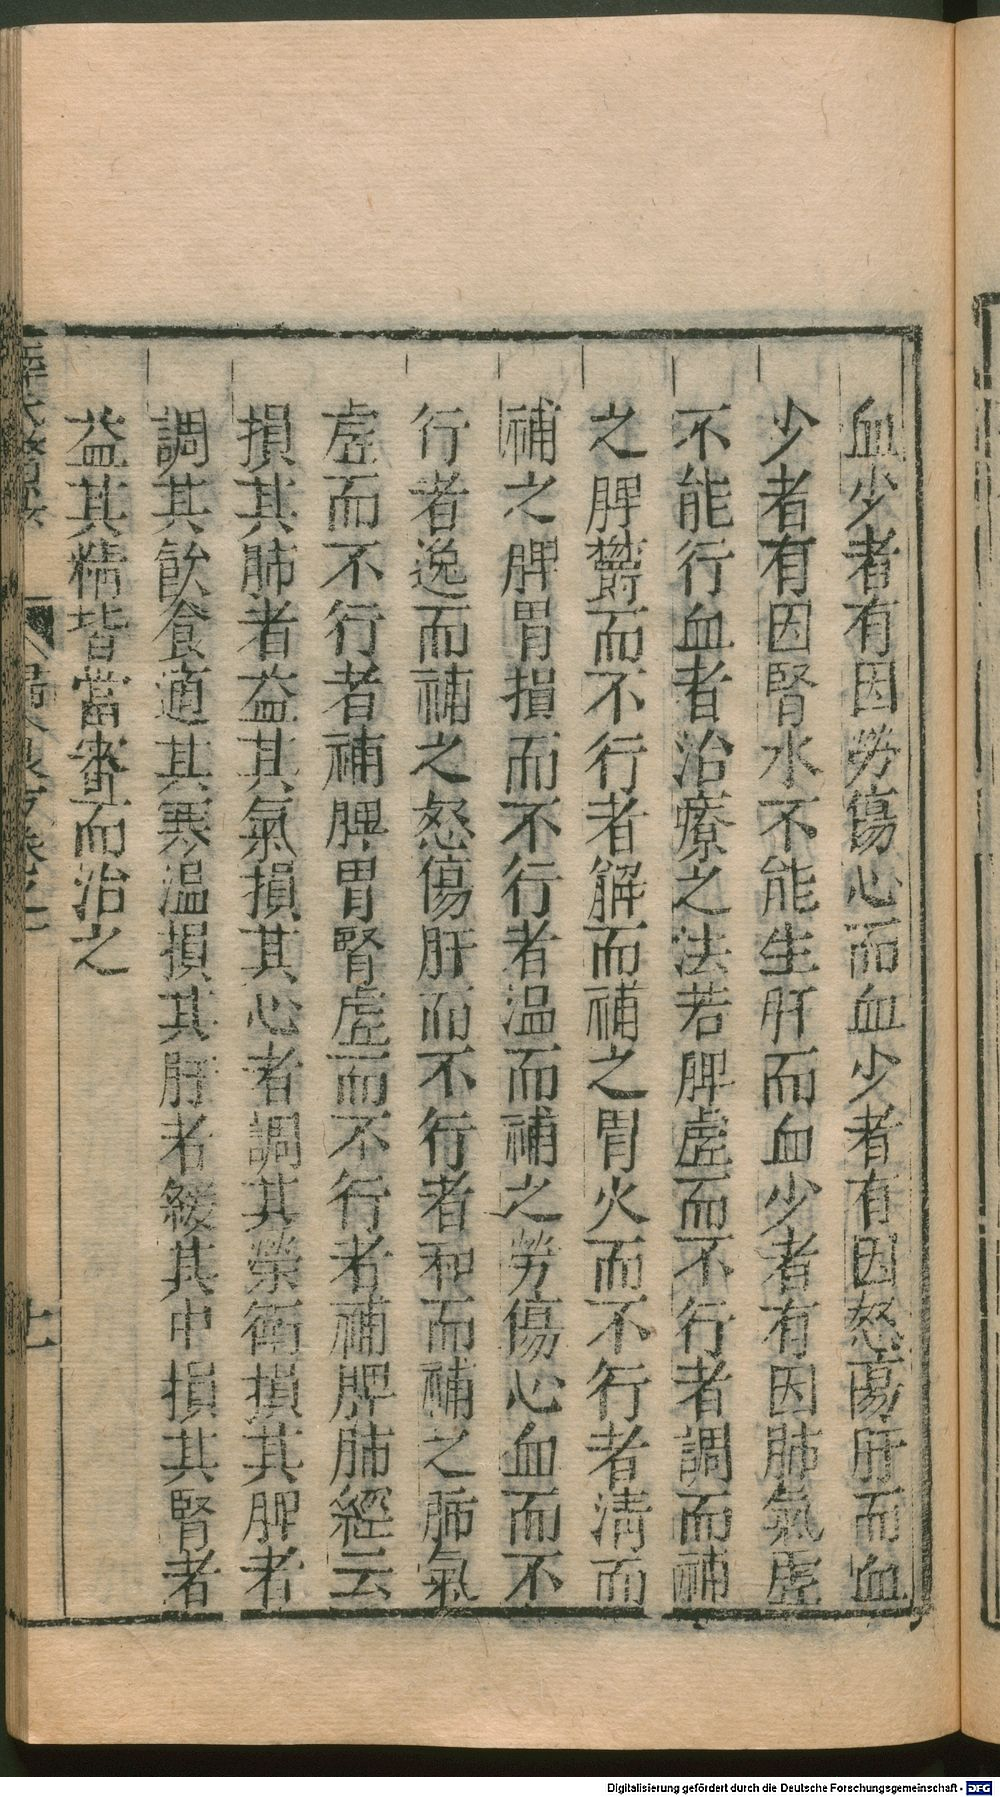 血少者有因勞傷心而血少者有因怒傷肝而血
少者有因腎水不能生肝而血少者有因肺氣虛
不能行血者治療之法若脾虛而不行者調而補
之脾欝而不行者解而補之胃火而不行者清而
補之脾胃損而不行者温而補之勞傷心血而不
行者逸而補之怒傷肝而不行者和而補之肺氣
虛而不行者補脾胃腎虛而不行者補脾肺經云
損其肺者益其氣損其心者調其榮衛損其脾者
調其飲食適其寒温損其肝者緩其中損其腎者
益其精皆當審而治之
Digitalisierung gefördert durch die Deutsche Forschungsgemeinschaft - DFG